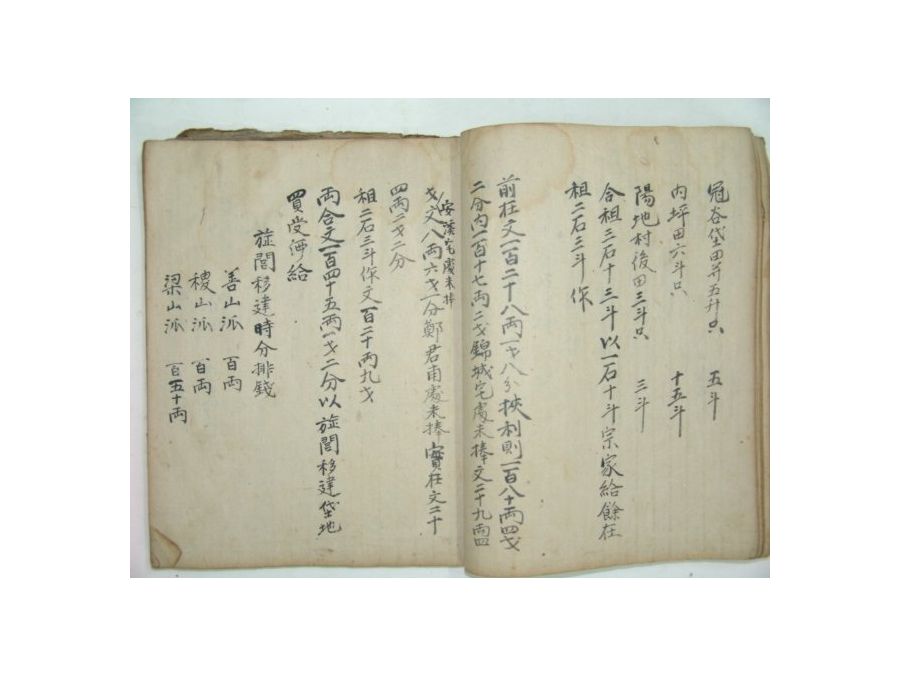 冠谷垈田幷五升只 五斗
內坪田六斗只 十五斗
陽地村後田三斗只 三斗
合租三石十三斗以一石十斗宗家給餘在
租二石三斗作
前在文一百二十八兩一戈八分挾利則一百八十兩四戈
二分內一百十七兩二戈錦城宅處未捧文二十九兩四
戈 安溪宅處未捧
文八兩六戈一分鄭君甫處未捧實在文二十
四兩二戈二分
租二石三斗作文一百二十兩九戈
兩合文一百四十五兩一戈二分以旌閭移建垈地
買受次給
旌閭移建時分排錢
善山派 百兩
稷山派 百兩
梁山派 百五十兩